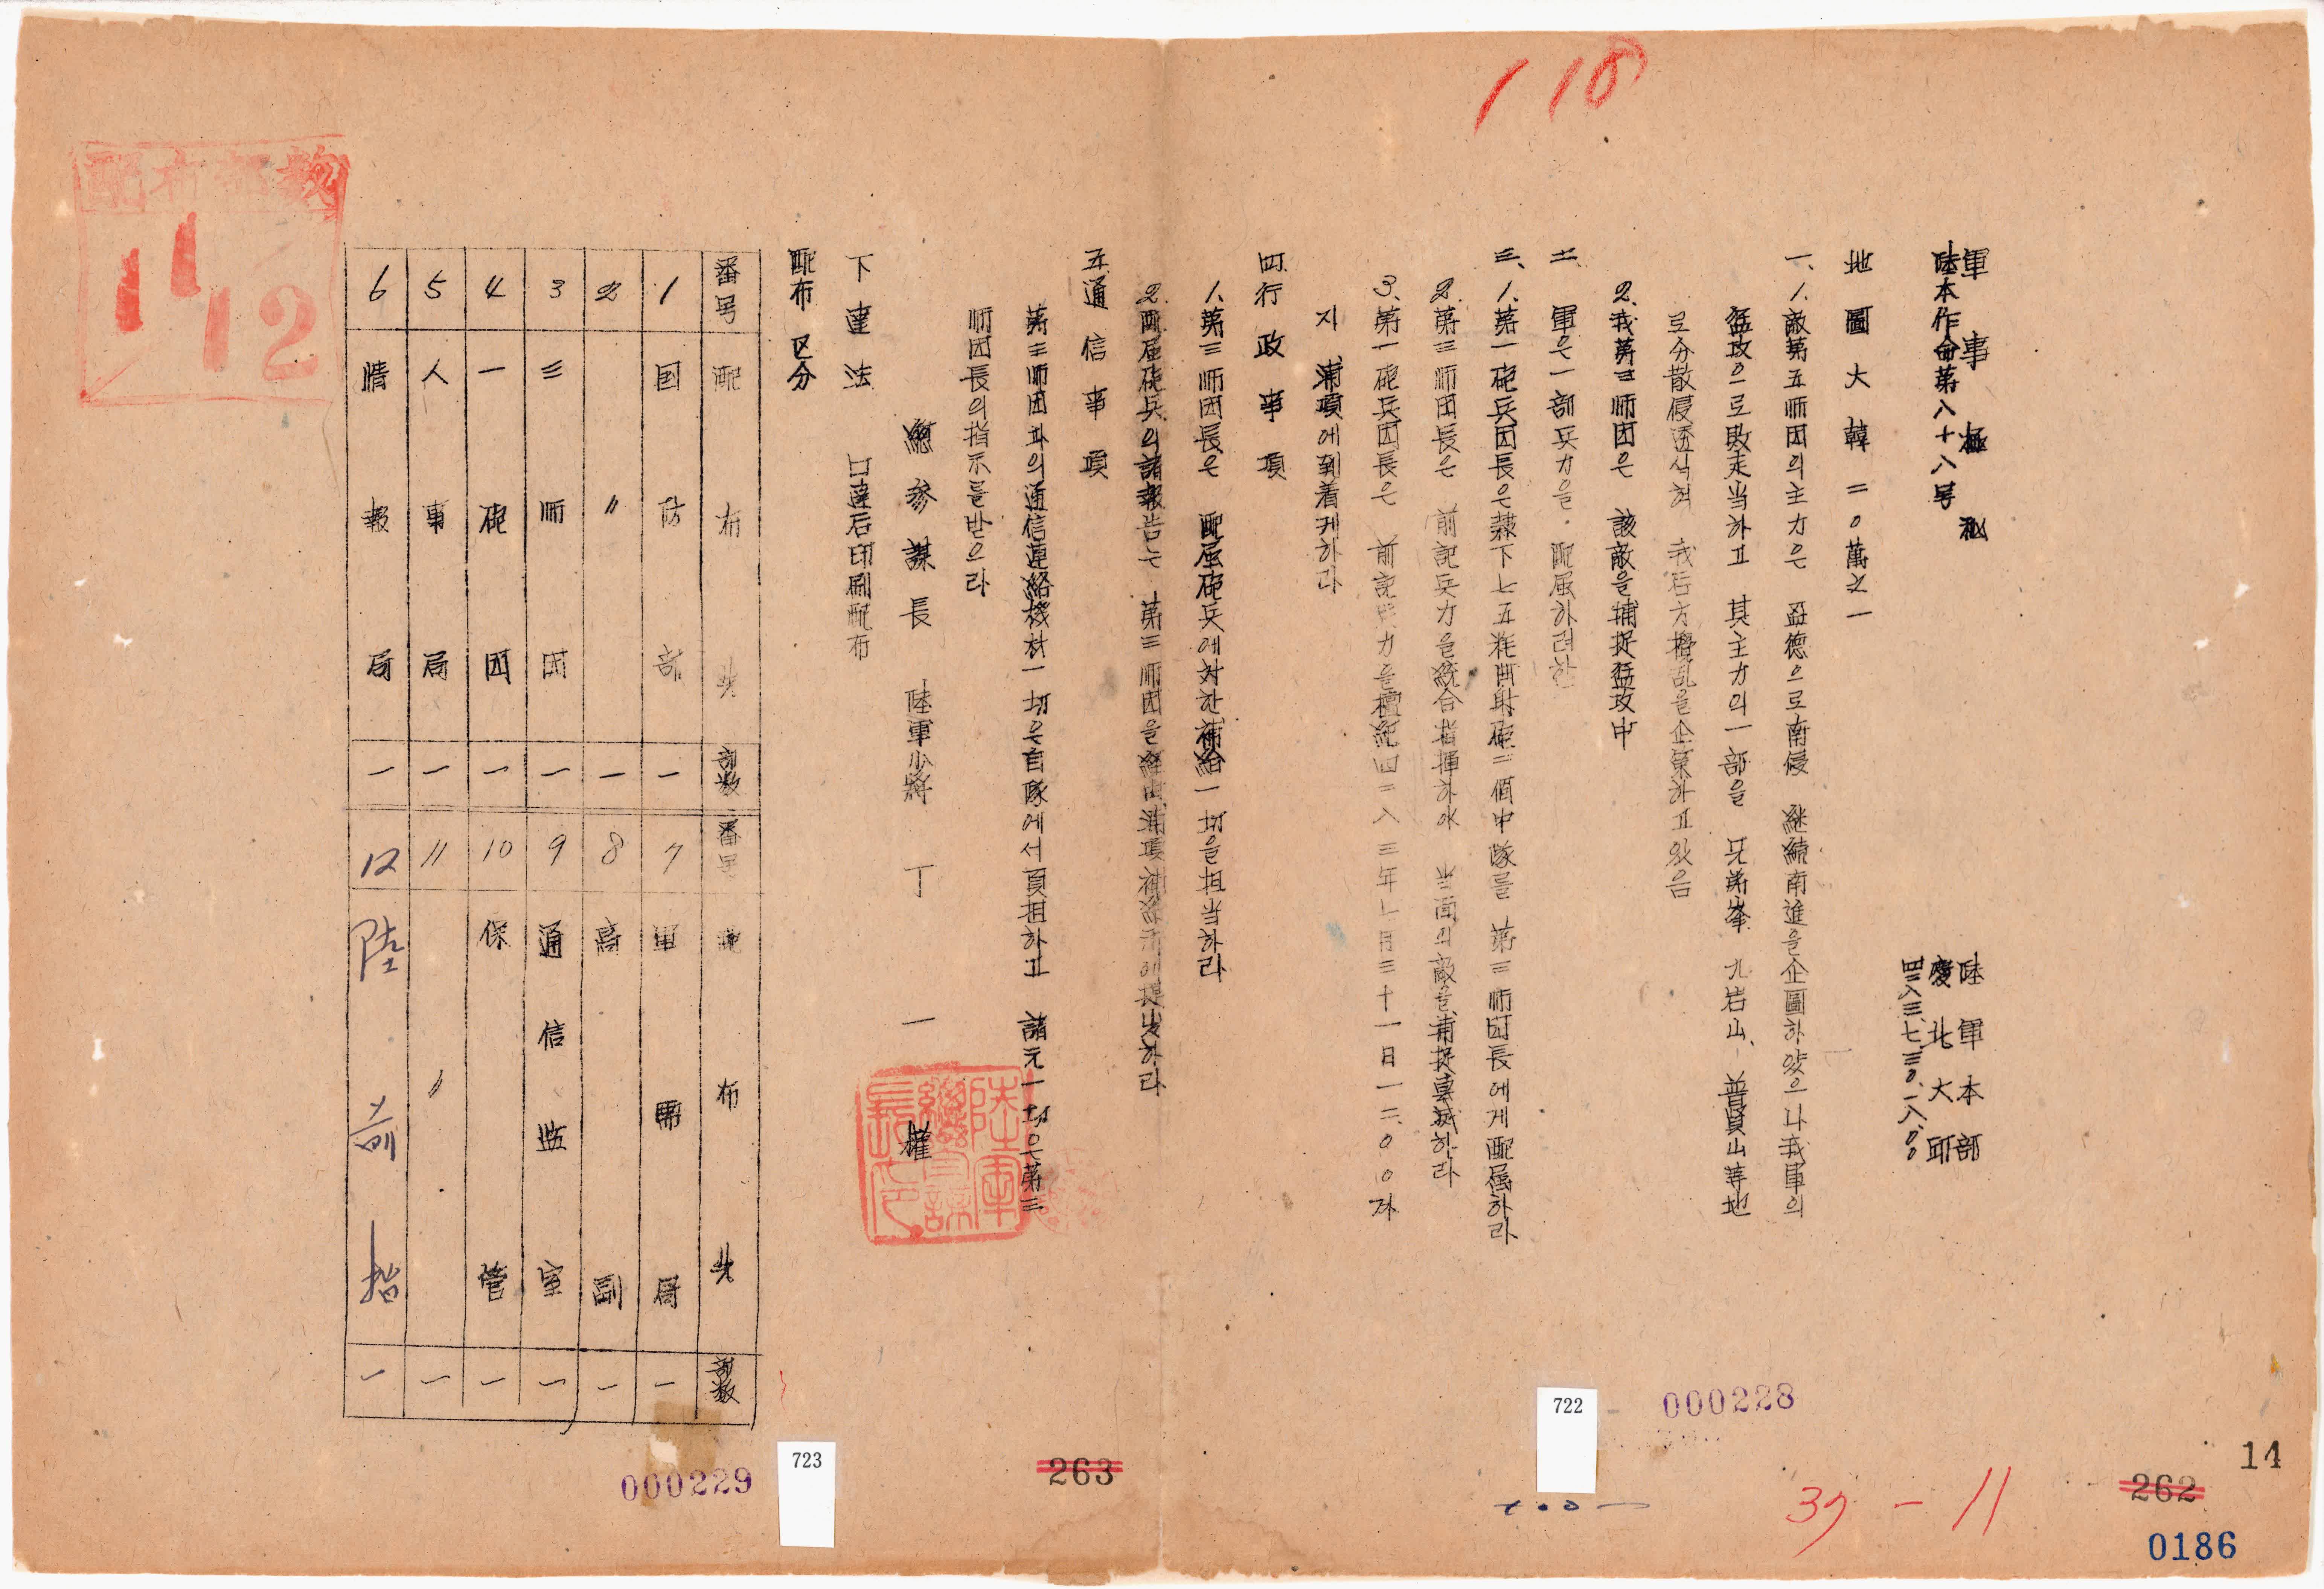 118
軍事極秘
陸本作命第八十八号
陸軍本部
慶北大邱
四二八三、七、三〇、一八、〇〇
地圖 大韓 二〇萬之一
一、1、敵第五师团의 主力은 盈德으로 南侵 継続南進을 企圖하였으나 我軍의
猛攻으로 敗走当하고 其主力의 一部을 兄弟峯 九岩山、普賢山等地
로 分散侵透식혀 我后方攪乱을 企策하고 있음
2、我第三师团은 該敵을 捕捉猛攻中
二、軍은 一部兵力을 配属하려 한다
三、1、第一砲兵团長은 隷下 七五粍曲射砲 二個中隊를 第三师团長에게 配属하라
2、第三师团長은 前記兵力을 統合指揮하야 当面의 敵을 捕捉 하라
3、第一砲兵团長은 前記兵力을 檀紀四二八三年七月三十一日一二、〇〇까
지 浦項에 到着케하라
四 行政事項
1、第三师团長은 配屈砲兵에 対한 補給一切을 担当하라
2、配屈砲兵의 諸報告는 第三师团을 経由 浦項補給所에 提出하라
五 通信事項
第三师团과의 通信連絡機材一切은 自隊에서 負担하고 諸元一切은 第三
师团長의 指示를 받으라
總参謀長 陸軍少將 丁一權
下達法 口達后印刷配布
配布区分
番号 配布先 部数 番号 配布先 部数
1 国防部 一 7 軍需局 一
2 〃 一 8 高副 一
3 三师团 一 9 通信监室 一
4 一砲团 一 10 保管 一
5 人事局 一 11 〃 一
6 情報局 一 12 陸前指 一
配布部数
11
12
陸軍總参謀長之印
722
000228
723
000229
263
262
14
37-11
0186